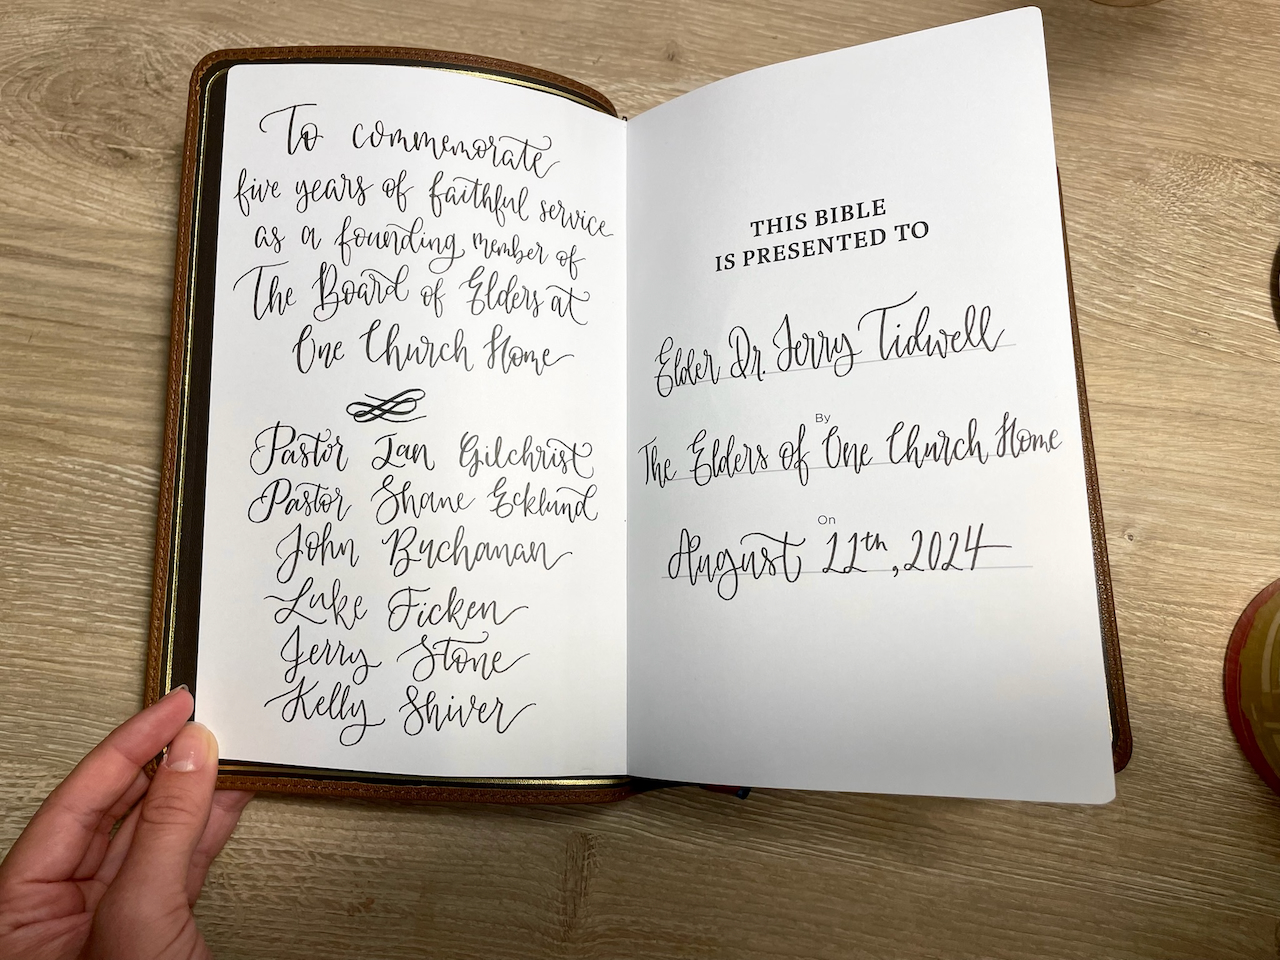 To commemorate
five years of faithful service
as a founding member of
The Board of Elders at
One Church Home
Pastor Ian Gilchrist
Pastor Shane Ecklund
John Buchanan
Luke Ficken
Jerry Stone
Kelly Shiver
THIS BIBLE
IS PRESENTED TO
Elder Dr. Jerry Tidwell
By
The Elders of One Church Home
On
August 22th, 2024